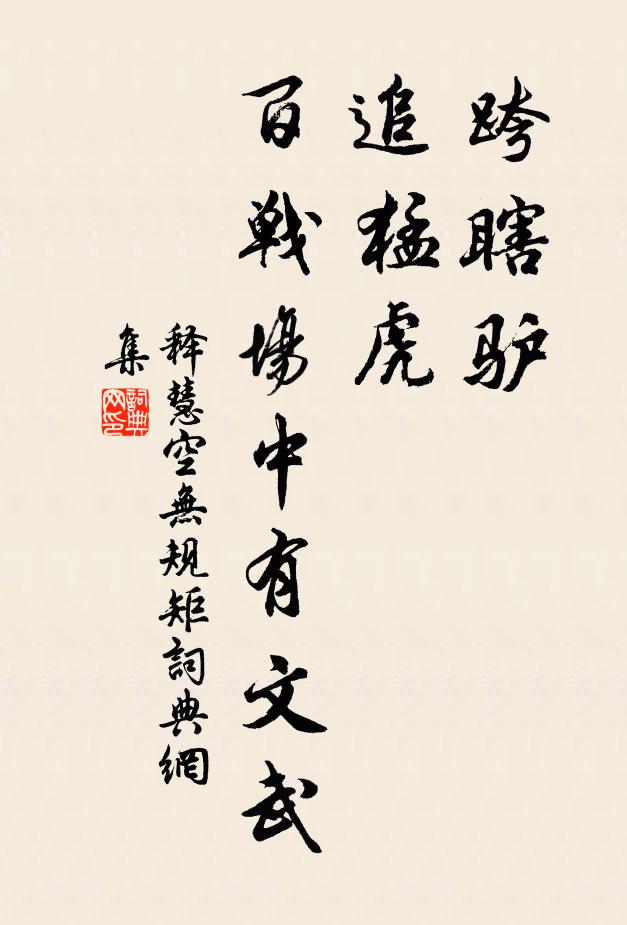 跨瞎驴
追猛虎
百戦場中有文武
释慧空無規矩詞典網
集
詞典網印